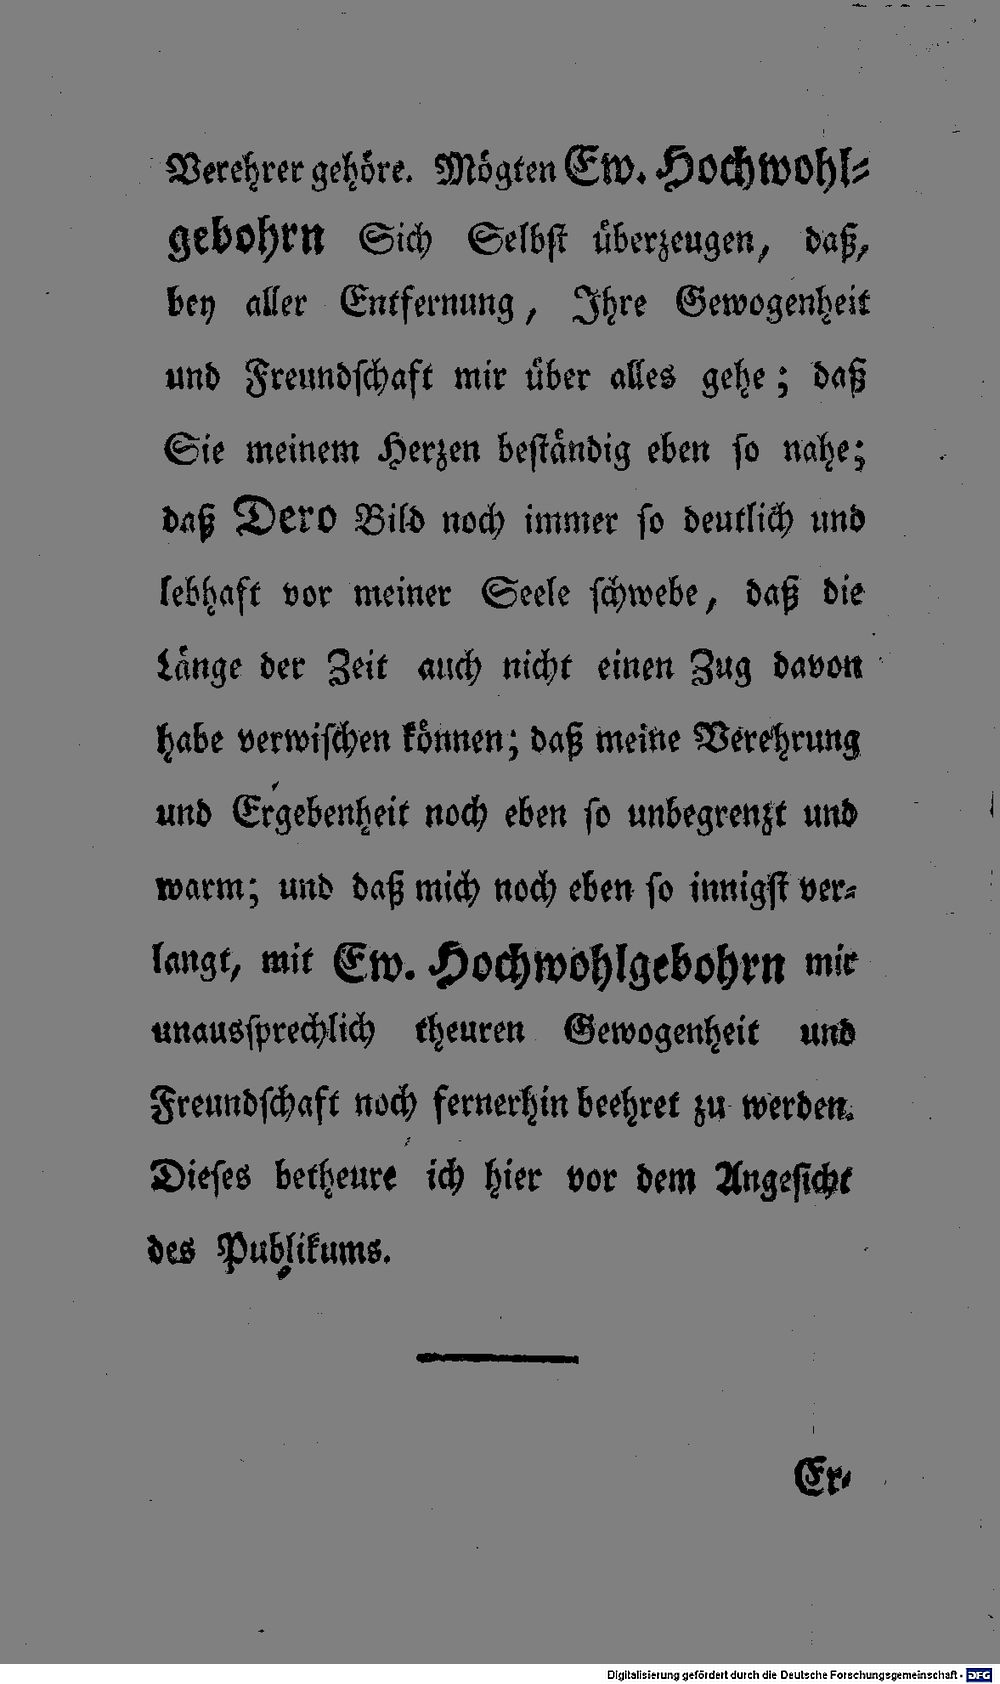 Verehrer gehöre. Mögten Ew. Hochwohl-
gebohrn Sich Selbst überzeugen, daß,
bey aller Entfernung, Ihre Gewogenheit
und Freundschaft mir über alles gehe; daß
Sie meinem Herzen beständig eben so nahe;
daß Dero Bild noch immer so deutlich und
lebhaft vor meiner Seele schwebe, daß die
Länge der Zeit auch nicht einen Zug davon
habe verwischen können; daß meine Verehrung
und Ergebenheit noch eben so unbegrenzt und
warm; und daß mich noch eben so innigst ver-
langt, mit Ew. Hochwohlgebohrn mir
unaussprechlich theuren Gewogenheit und
Freundschaft noch fernerhin beehret zu werden.
Dieses betheure ich hier vor dem Angesicht
des Publikums.
Er-
Digitalisierung gefördert durch die Deutsche Forschungsgemeinschaft - DFG